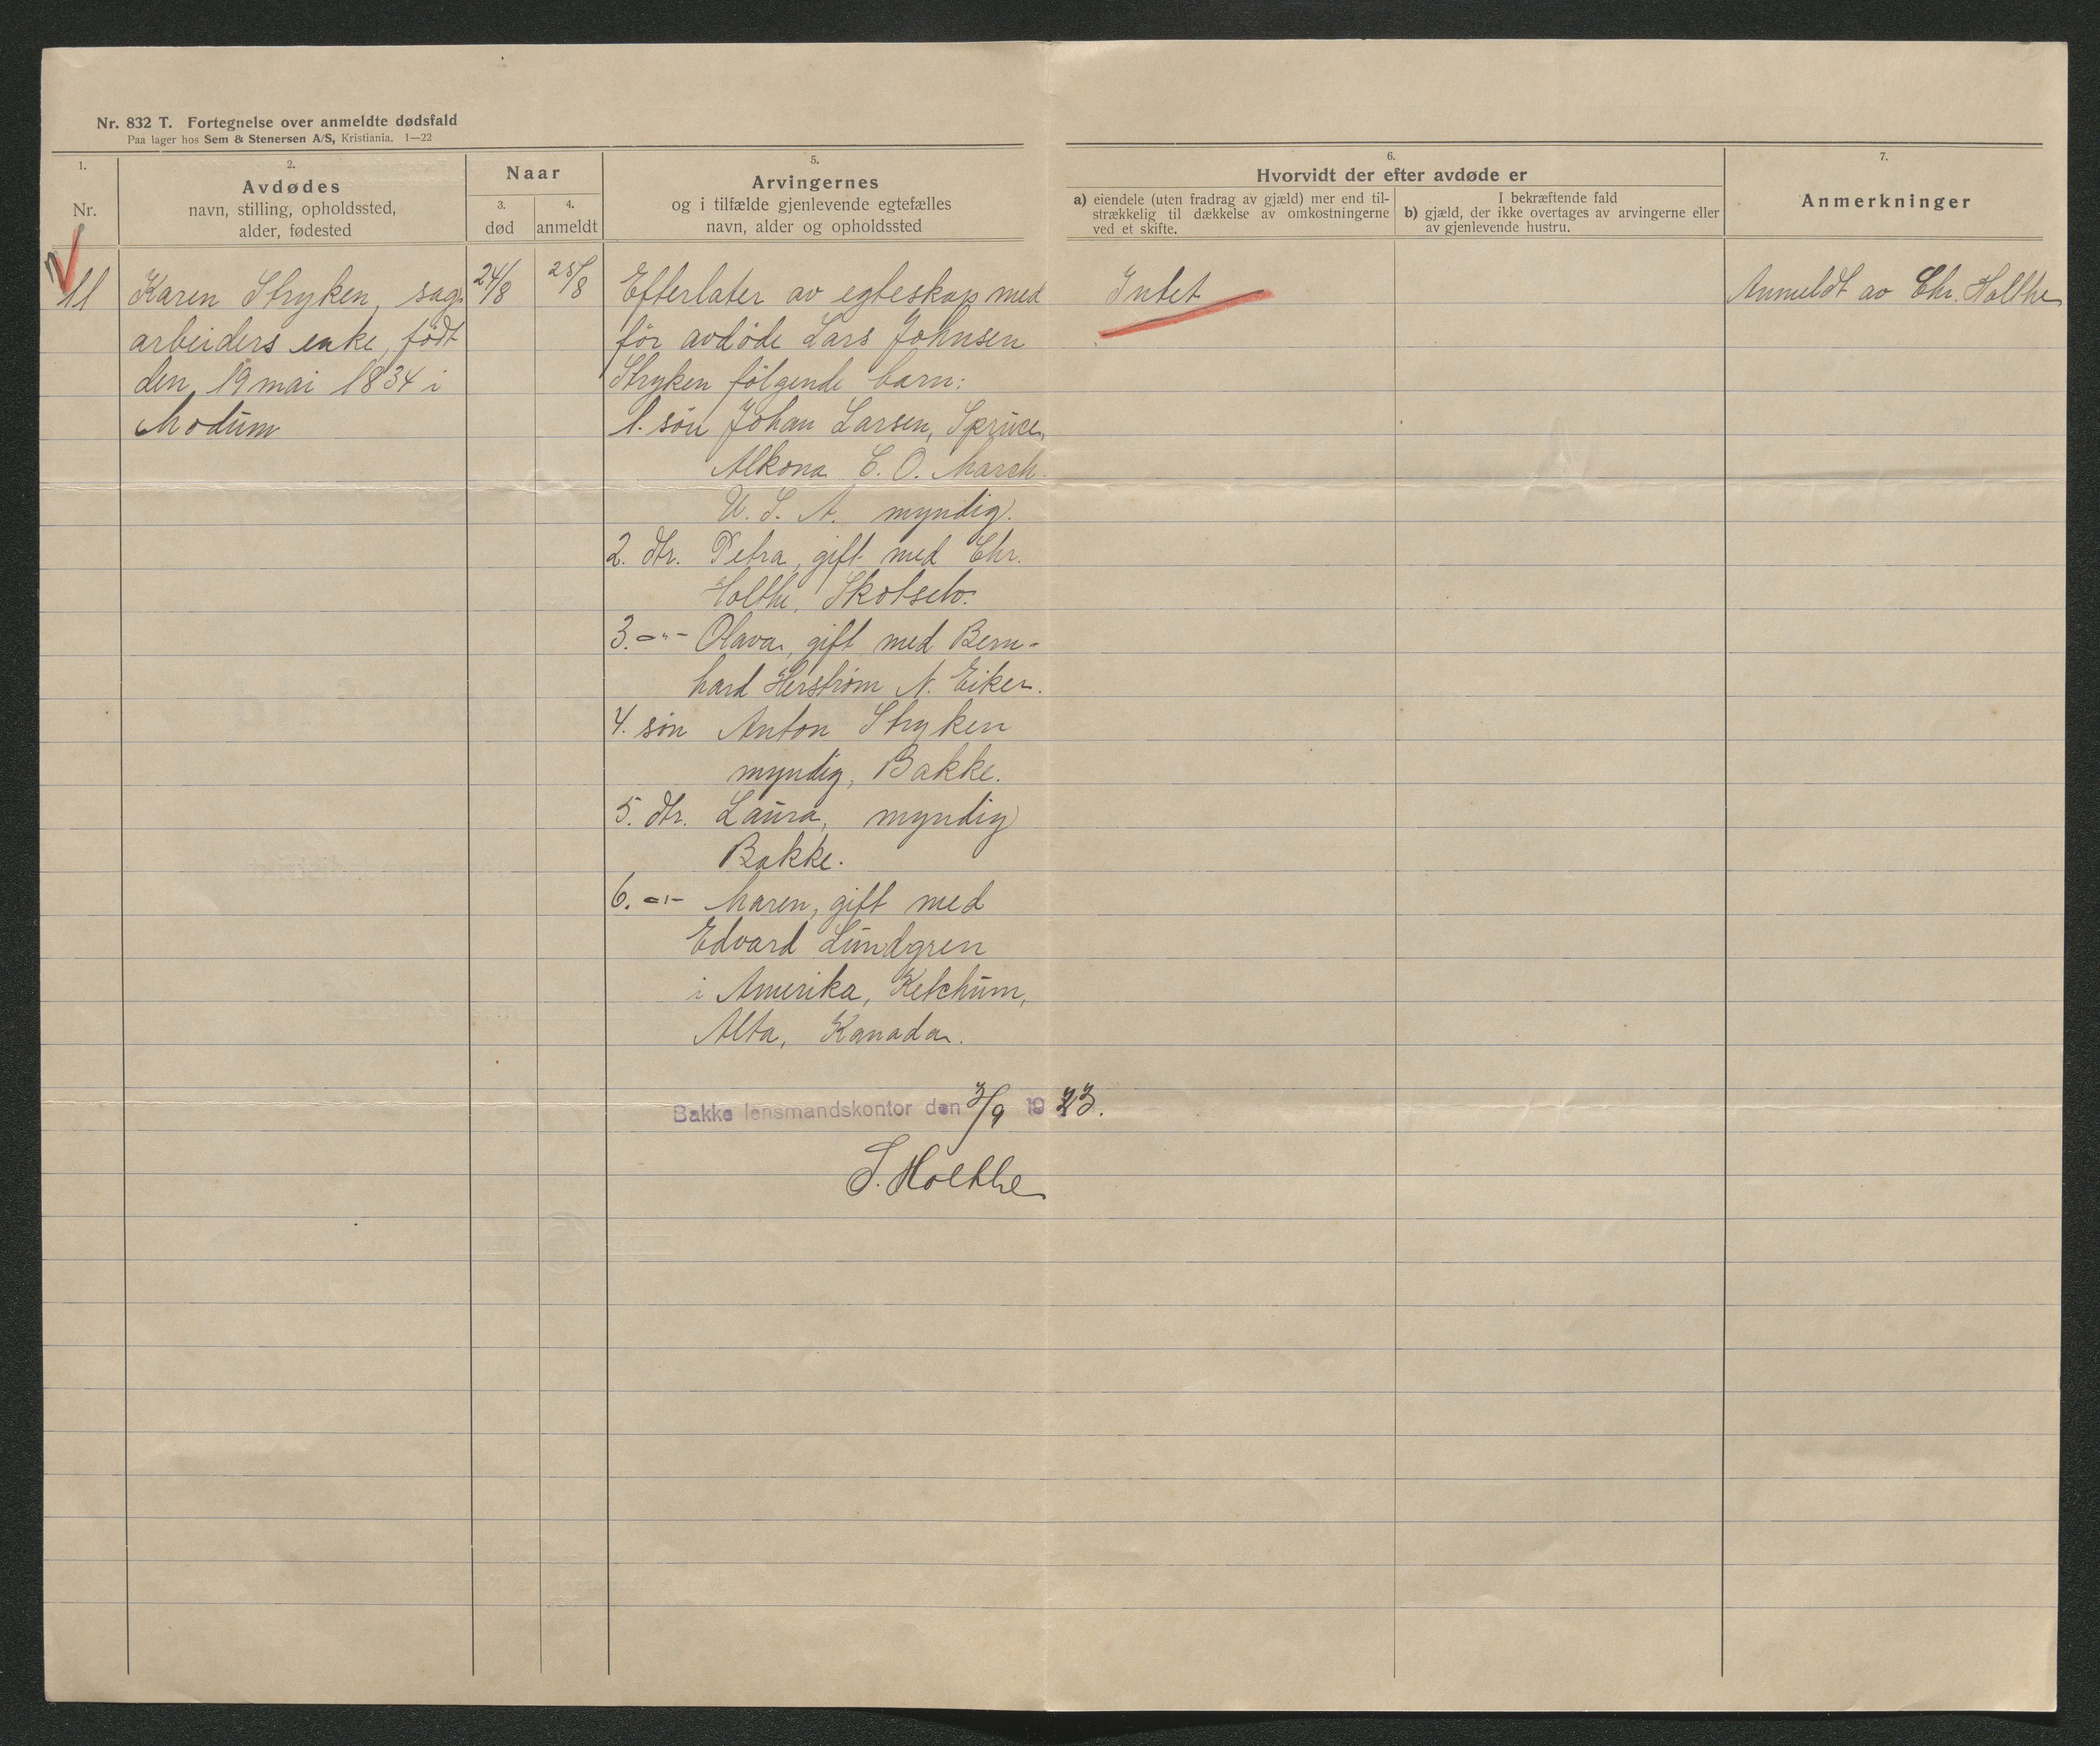 Nr. 832 T. Fortegnelse over anmeldte dødsfald
Paa lager hos Sem & Stenersen A/S, Kristiania. 1—22
1.
Nr.
2.
Avdødes
navn, stilling, opholdssted,
alder, fødested
Naar
3.
død
4.
anmeldt
5.
Arvingernes
og i tilfælde gjenlevende egtefælles
navn, alder og opholdssted
6.
Hvorvidt der efter avdøde er
a) eiendele (uten fradrag av gjæld) mer end til-
strækkelig til dækkelse av omkostningerne
ved et skifte.
I bekræftende fald
b) gjæld, der ikke overtages av arvingerne eller
av gjenlevende hustru.
7.
Anmerkninger
11
Karen Stryken, sag-
arbeiders enke, født
den 19 mai 1834 i
Modum
24/8
25/8
Efterlater av egteskap med
før avdøde Lars Johnsen
Stryken følgende barn:
1. søn Johan Larsen, Spruce,
Alkona C. O. March
U. S. A. myndig.
2. dtr. Petra, gift med Chr.
Holthe, Skotselv.
3. -"- Olava, gift med Bern-
hard Herstrøm N. Eiker.
4. søn Anton Stryken
myndig, Bakke.
5. dtr. Laura, myndig
Bakke.
6. -"- Maren, gift med
Edvard Lundgren
i Amerika, Ketchum,
Alta, Kanada.
Intet
Anmeldt av Chr. Holthe
Bakke lensmandskontor den 3/9 1923.
S. Holthe